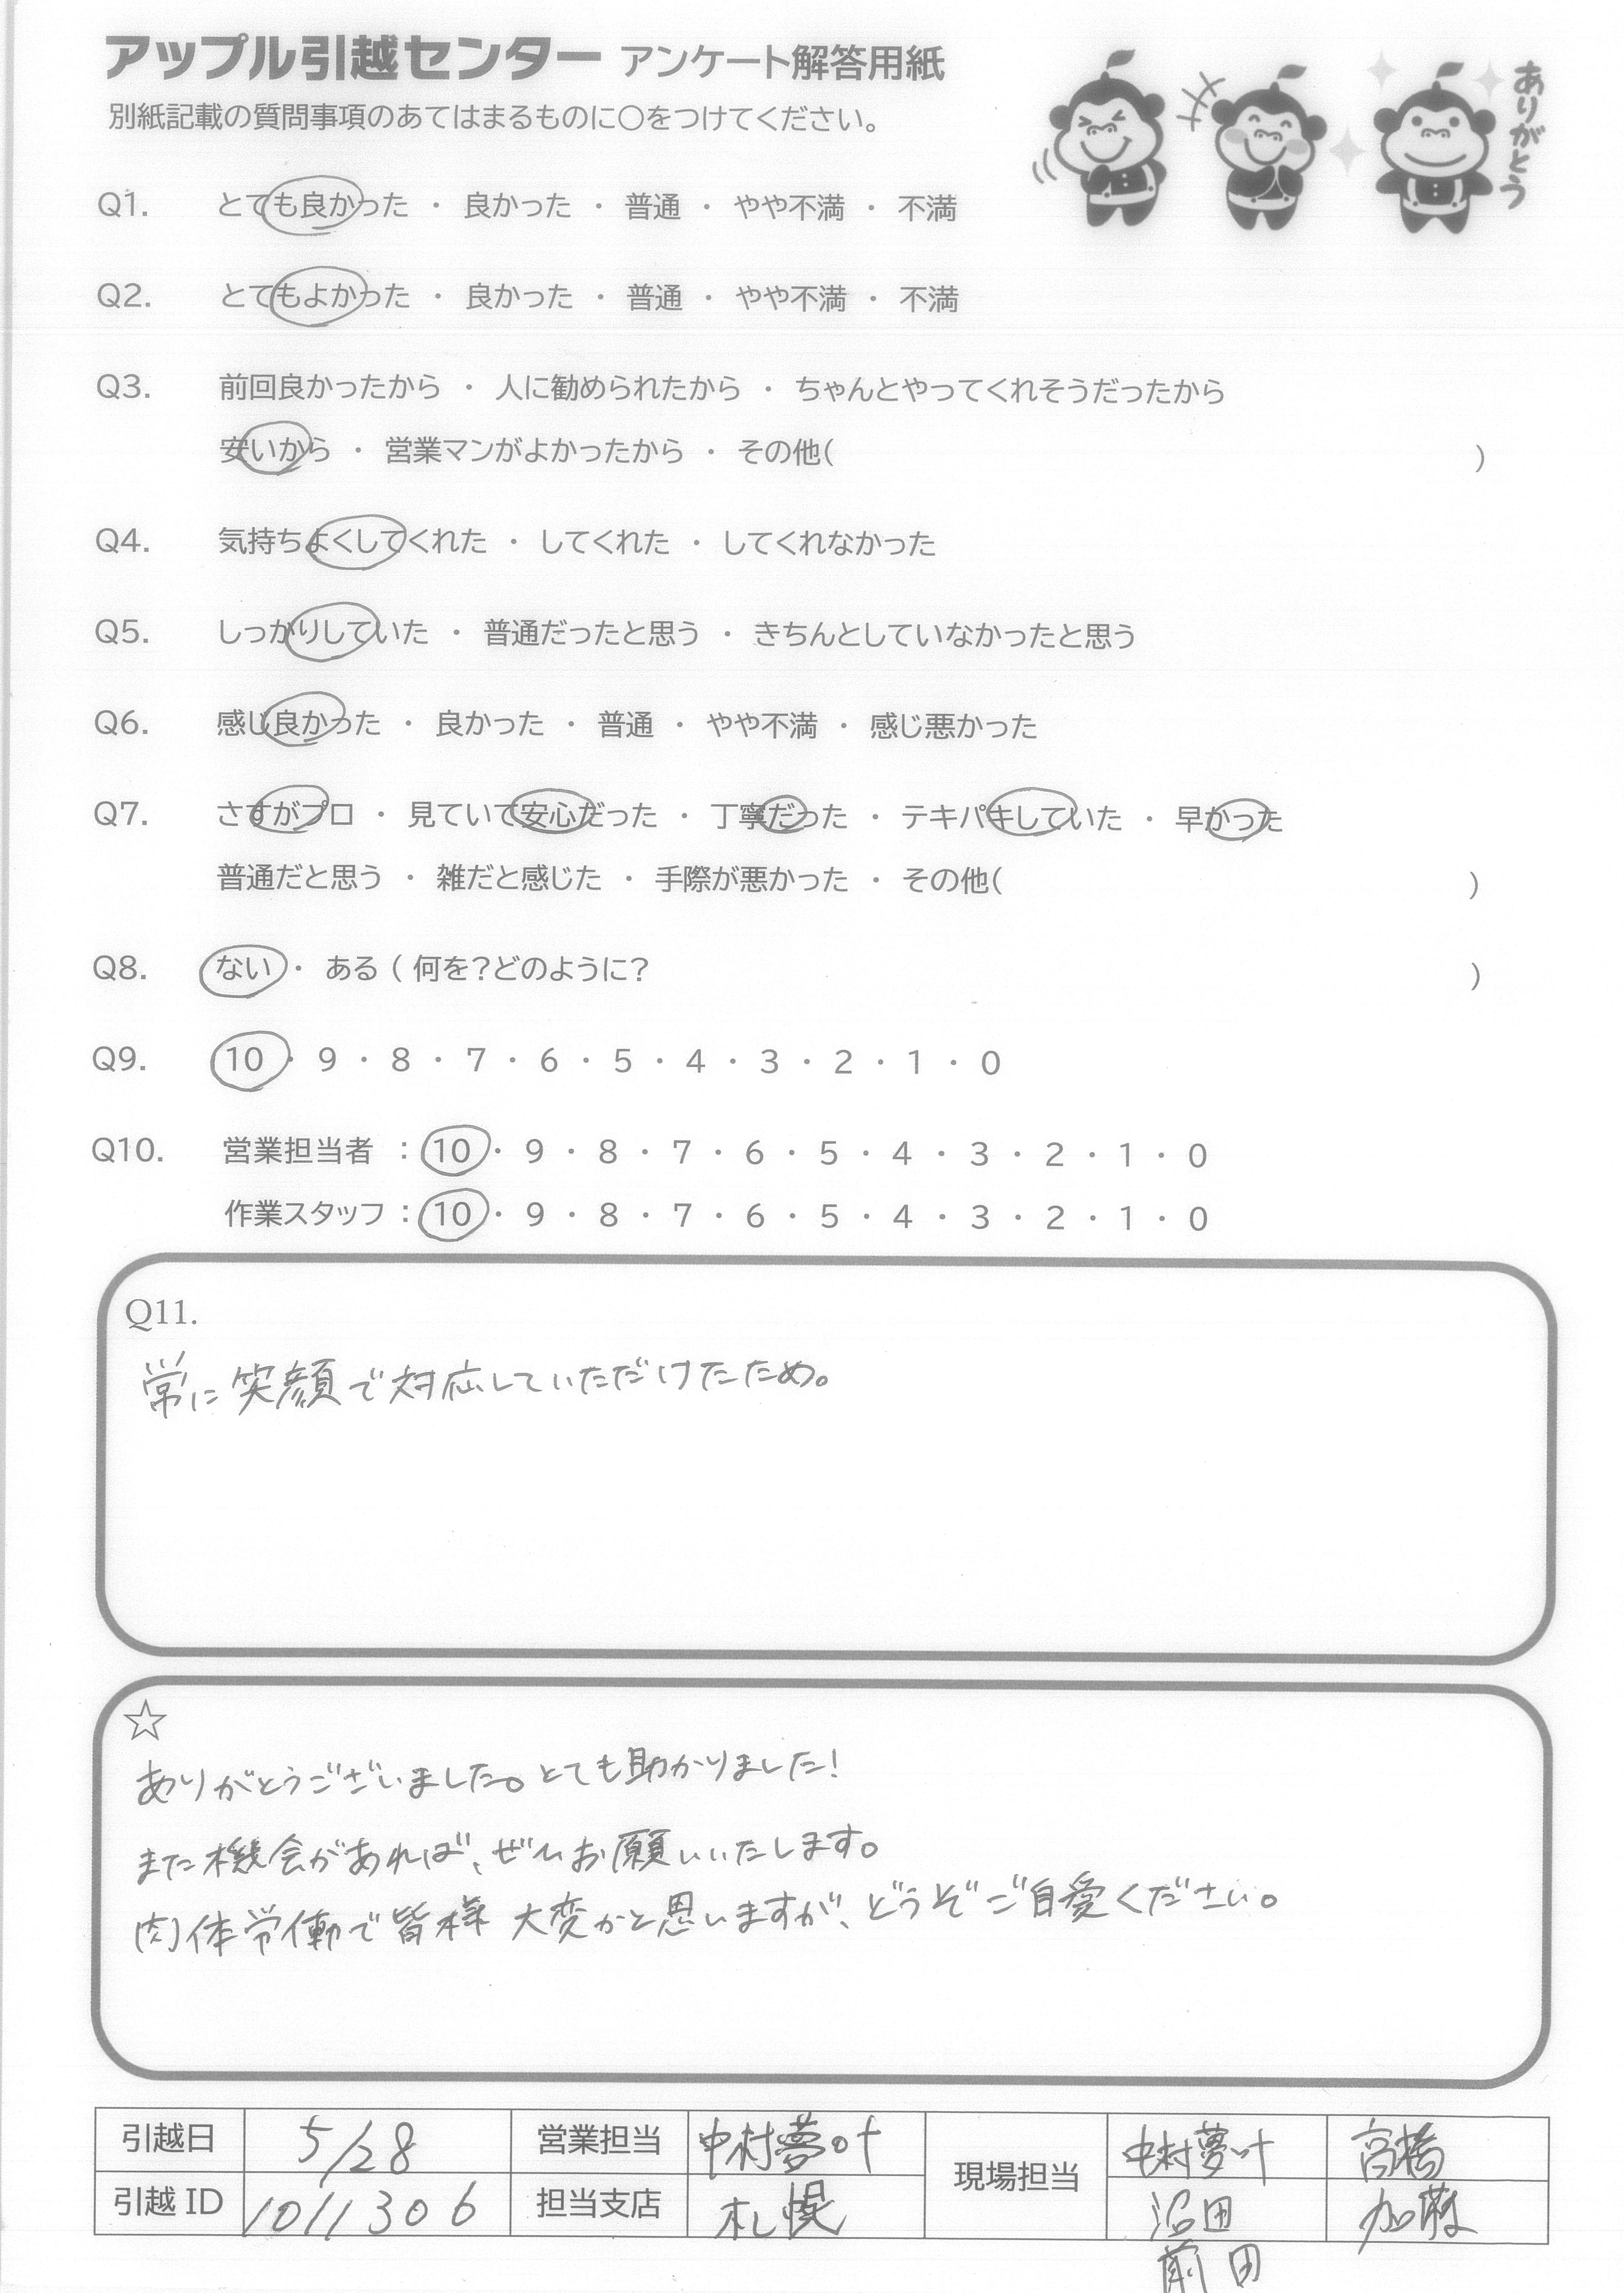 アップル引越センター アンケート解答用紙
別紙記載の質問事項のあてはまるものに○をつけてください。
ありがとう
Q1. とても良かった ・ 良かった ・ 普通 ・ やや不満 ・ 不満
Q2. とてもよかった ・ 良かった ・ 普通 ・ やや不満 ・ 不満
Q3. 前回良かったから ・ 人に勧められたから ・ ちゃんとやってくれそうだったから
安いから ・ 営業マンがよかったから ・ その他( )
Q4. 気持ちよくしてくれた ・ してくれた ・ してくれなかった
Q5. しっかりしていた ・ 普通だったと思う ・ きちんとしていなかったと思う
Q6. 感じ良かった ・ 良かった ・ 普通 ・ やや不満 ・ 感じ悪かった
Q7. さすがプロ ・ 見ていて安心だった ・ 丁寧だった ・ テキパキしていた ・ 早かった
普通だと思う ・ 雑だと感じた ・ 手際が悪かった ・ その他( )
Q8. ない ・ ある ( 何を?どのように? )
Q9. 10 ・ 9 ・ 8 ・ 7 ・ 6 ・ 5 ・ 4 ・ 3 ・ 2 ・ 1 ・ 0
Q10. 営業担当者 : 10 ・ 9 ・ 8 ・ 7 ・ 6 ・ 5 ・ 4 ・ 3 ・ 2 ・ 1 ・ 0
作業スタッフ : 10 ・ 9 ・ 8 ・ 7 ・ 6 ・ 5 ・ 4 ・ 3 ・ 2 ・ 1 ・ 0
Q11.
常に笑顔で対応していただけたため。
☆
ありがとうございました。とても助かりました!
また機会があれば、ぜひお願いいたします。
肉体労働で皆様 大変かと思いますが、どうぞご自愛ください。
引越日 5/28 営業担当 中村夢叶 現場担当 中村夢叶 高橋
引越ID 1011306 担当支店 札幌 沼田 加藤
前田